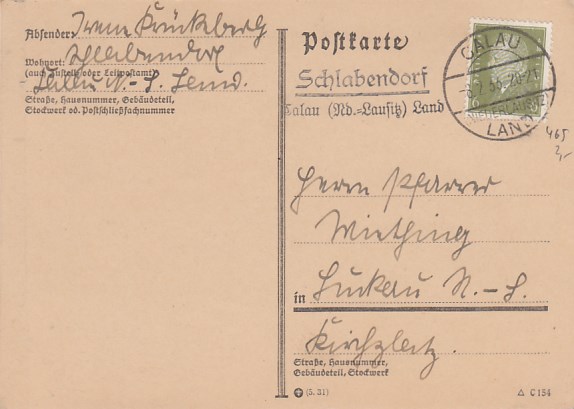 Absender: Irene Krückeberg
Wohnort: Schlabendorf
(auch Zustell- oder Leitpostamt)
Calau N.-L. Land.
Straße, Hausnummer, Gebäudeteil,
Stockwerk od. Postschließfachnummer
Postkarte
Schlabendorf
Calau (Nd.-Lausitz) Land
CALAU
20-21
(NIEDERLAUSITZ)
LAND
465
2,-
Herrn Pfarrer
Wiething
in Luckau N.-L.
Kirchplatz.
Straße, Hausnummer,
Gebäudeteil, Stockwerk
(5. 31)
C 154